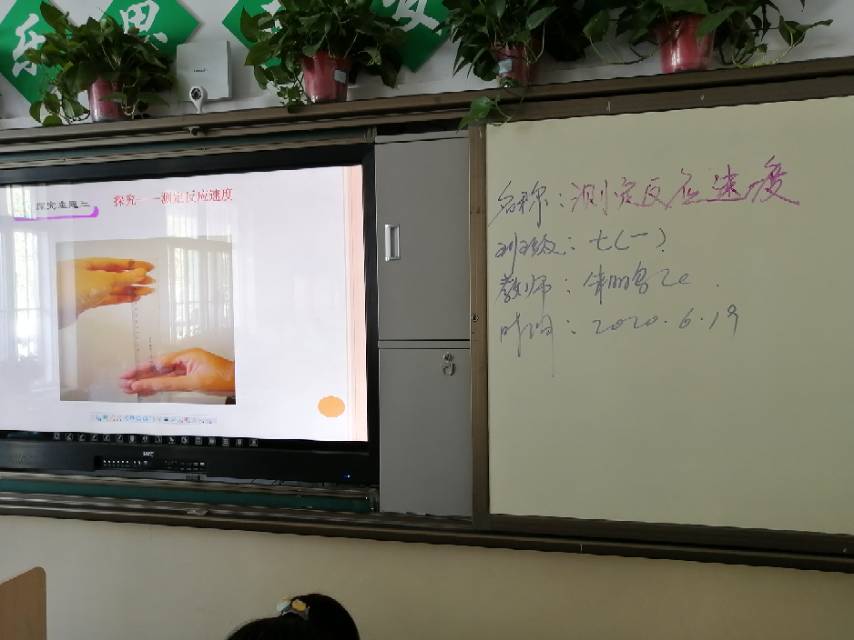 乐 思
探究主题二
探究一——测定反应速度
名称：测定反应速度
班级：七(一)
教师：
时间：2020.6.19